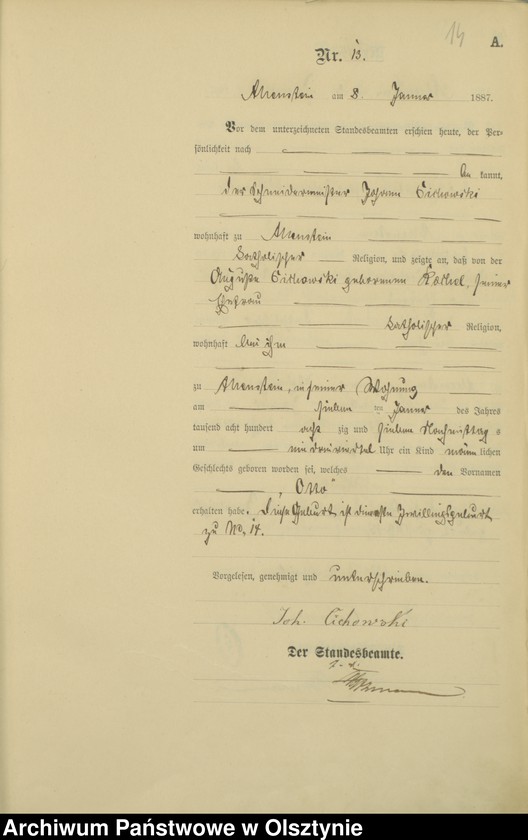 14
A.
Nr. 13.
Allenstein am 8. Januar 1887.
Vor dem unterzeichneten Standesbeamten erschien heute, der Per-
sönlichkeit nach
be kannt,
der Schneidermeister Johann Cichowski
wohnhaft zu Allenstein
katholischer Religion, und zeigte an, daß von der
Auguste Cichowski geborenen seiner
Ehefrau
katholischer Religion,
wohnhaft bei ihm
zu Allenstein, in seiner Wohnung
am sieben ten Januar des Jahres
tausend acht hundert acht zig und sieben Nachmittag s
um ein dreiviertel Uhr ein Kind männ lichen
Geschlechts geboren worden sei, welches den Vornamen
„Otto“
erhalten habe. Diese Geburt ist die erste Zwillingsgeburt
zu No. 14.
Vorgelesen, genehmigt und unterschrieben.
Joh. Cichowski
Der Standesbeamte.
Archiwum Państwowe w Olsztynie